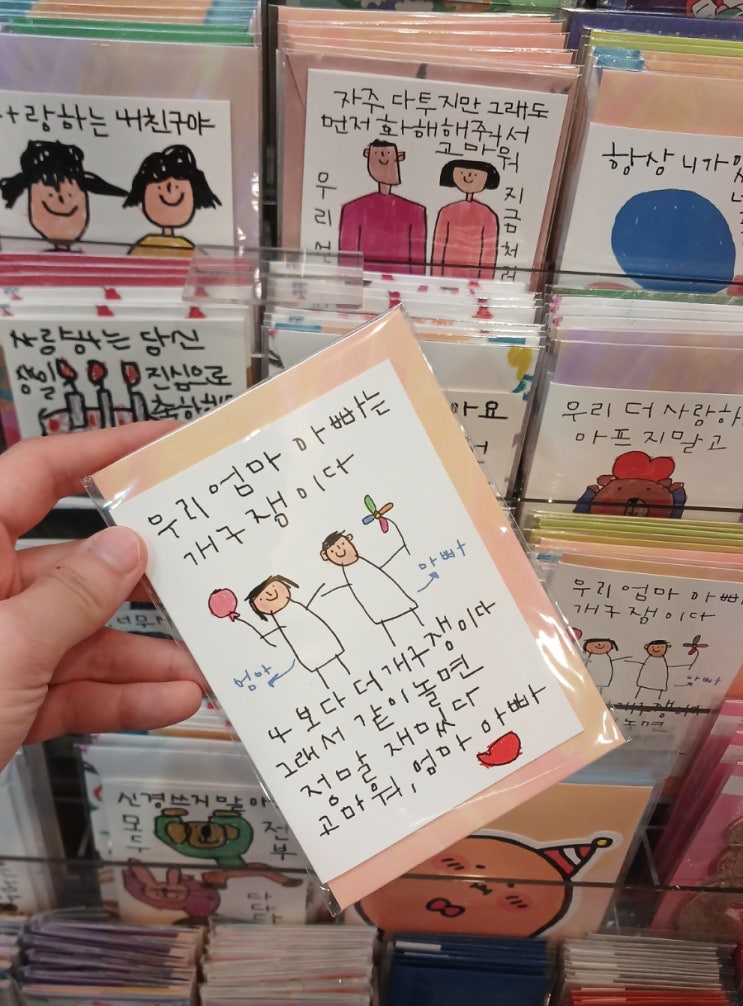 사랑하는 내친구야
자주 다투지만 그래도
먼저 화해해줘서
고마워
우리
지금처럼
항상 니가
사랑하는 당신
생일 진심으로
우리 더 사랑하
마프지말고
우리 엄마 아빠는
개구쟁이다
아빠
엄마
나 보다 더 개구쟁이다
그래서 같이 놀면
정말 재밌다
고마워, 엄마 아빠
우리 엄마 아빠
개구쟁이다
아빠
개구쟁이다
놀면
신경쓰지말아
모두 전부